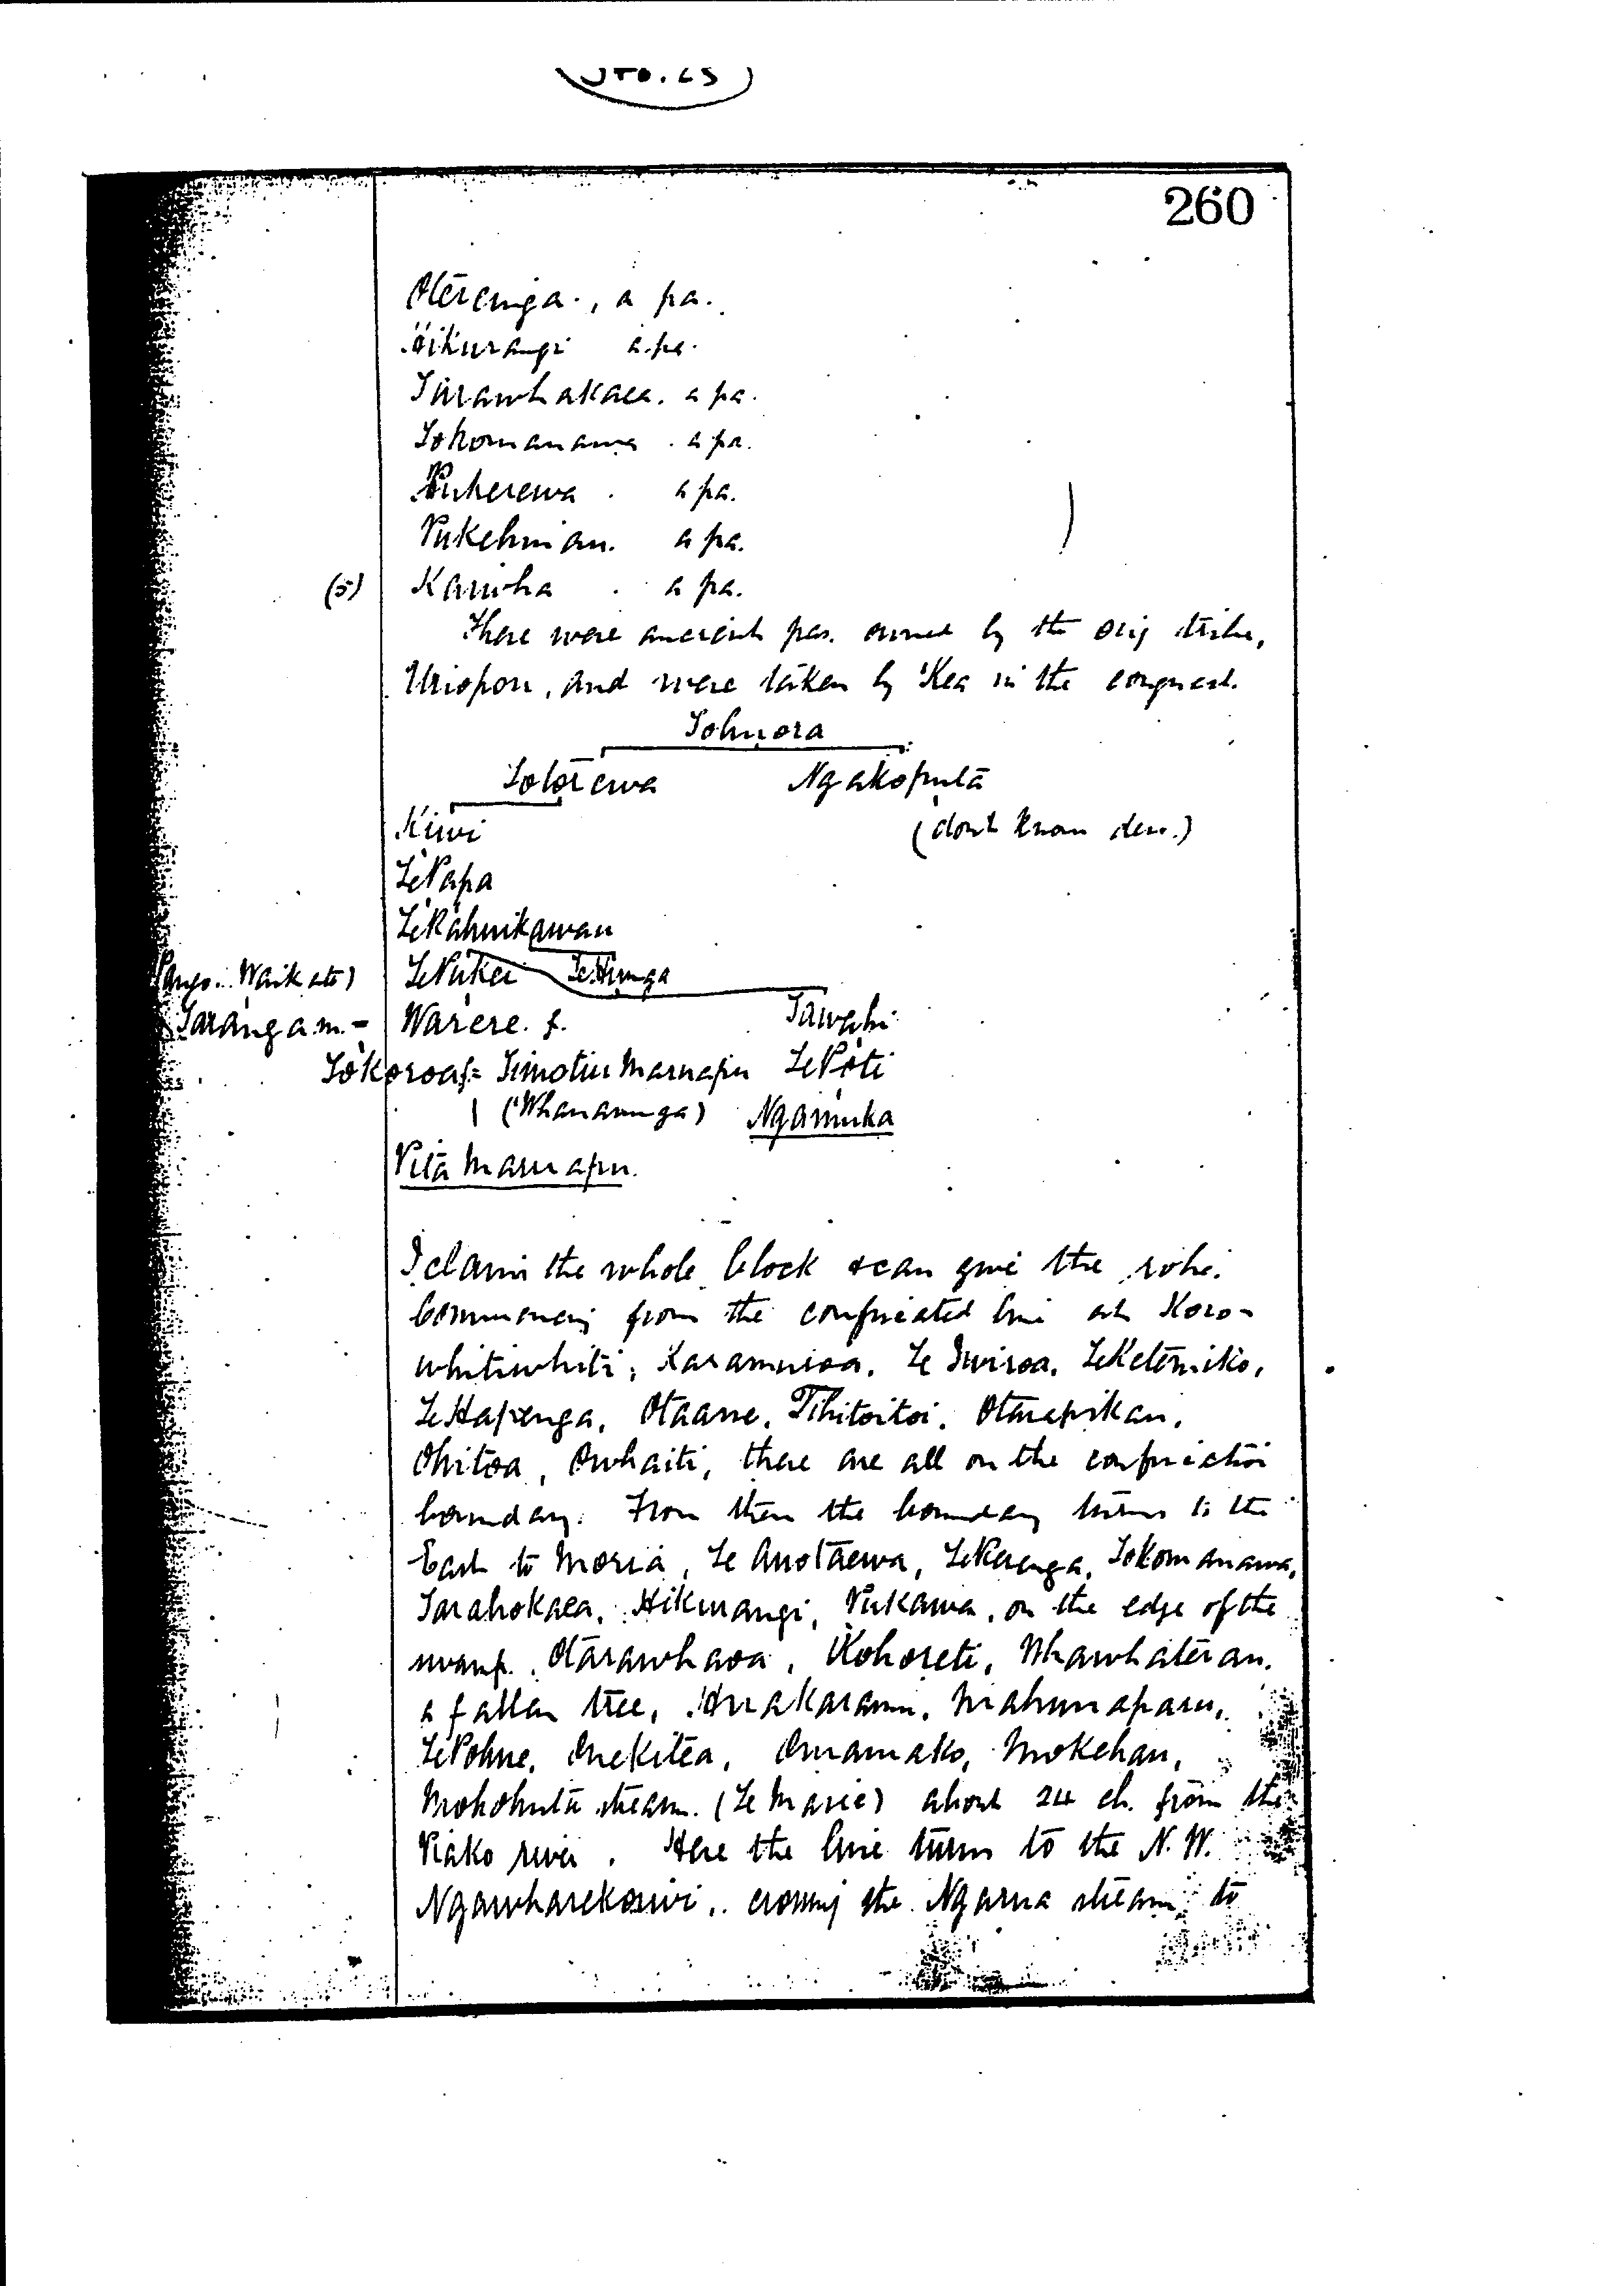 260
Oterenga, a pa.
Hikurangi a pa.
Tarawhakaea. a pa.
Tokomanawa. a pa.
Pukerewa. a pa.
Pukehuiau. a pa.
(5) Karioha. a pa.
These were ancient pas. owned by the orig tribe,
Uriopou, and were taken by Kea in the conquest.
Tohuora
Totorewa Ngakoputa
Kiwi (dont know des.)
Te Papa
Te Rahuikawau
Waikato) Te Pukei Te Hunga
Taranga m. = Warere. f. Tawahi
Tokoroa f = Timotiu Maruapu Te Poti
(Whanaunga) Ngamuka
Pita Maruapu.
I claim the whole block & can give the rohe.
Commencing from the confiscated line at Koro-
whitiwhiti, Karamuroa, Te Iwiroa, Te Ketemiko,
Te Hapenga, Otaane, Tihitoitoi, Otarapikau,
Ohitoa, Owhaiti, these are all on the confiscation
boundary. From then the boundary turns to the
East to Moria, Te Auotaewa, Te Rerenga, Tokomanawa,
Tarahokaea, Hikurangi, Pukawa, on the edge of the
swamp. Otarawhaoa, Kohoreti, Whawhaterau.
a fallen tree, Huakaramu, Mahunaparu,
Te Pohue, Onekitea, Omamako, Mokehau,
Mohohuta stream. (Te Marie) about 24 ch. from the
Piako river. Here the line turns to the N. W.
Ngawharekouwi, crossing the Ngarua stream, to